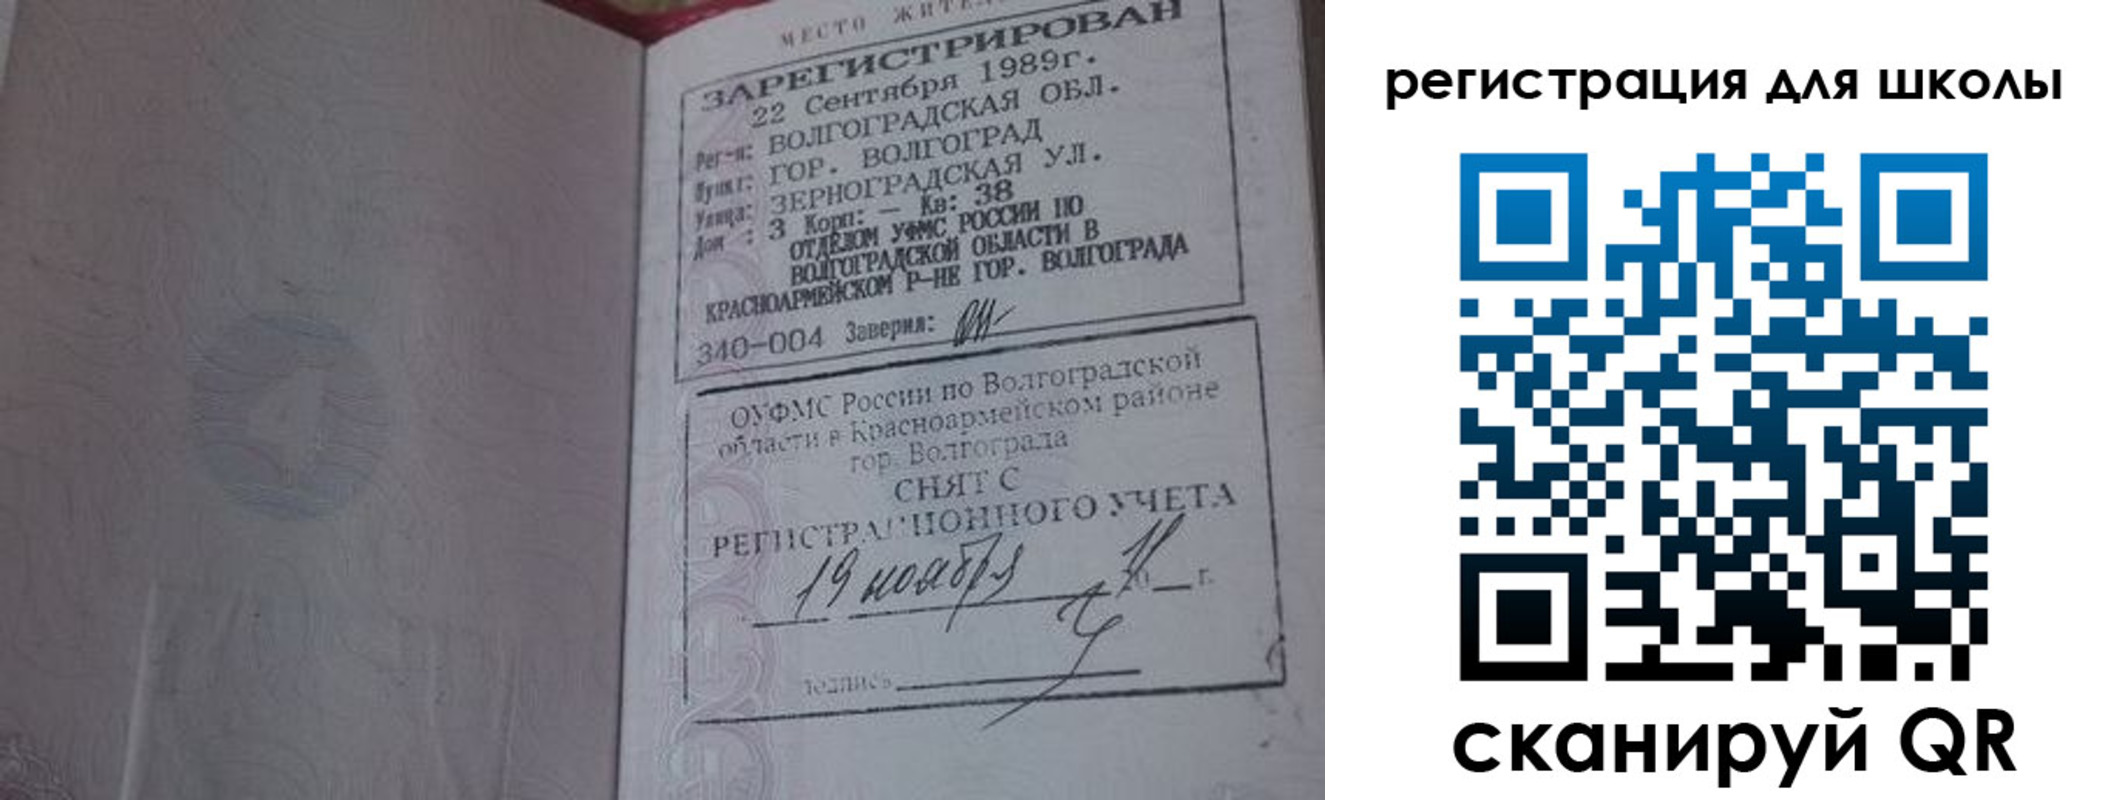 МЕСТО ЖИТЕЛ
ЗАРЕГИСТРИРОВАН
22 Сентября 1989г.
Рег-н: ВОЛГОГРАДСКАЯ ОБЛ.
Пункт: ГОР. ВОЛГОГРАД
Улица: ЗЕРНОГРАДСКАЯ УЛ.
Дом : 3 Корп: — Кв: 38
ОТДЕЛОМ УФМС РОССИИ ПО
ВОЛГОГРАДСКОЙ ОБЛАСТИ В
КРАСНОАРМЕЙСКОМ Р-НЕ ГОР. ВОЛГОГРАДА
340-004 Заверил:
ОУФМС России по Волгоградской
области в Красноармейском районе
гор. Волгограда
СНЯТ С
РЕГИСТРАЦИОННОГО УЧЕТА
19 ноября 20 11 г.
подпись
регистрация для школы
сканируй QR